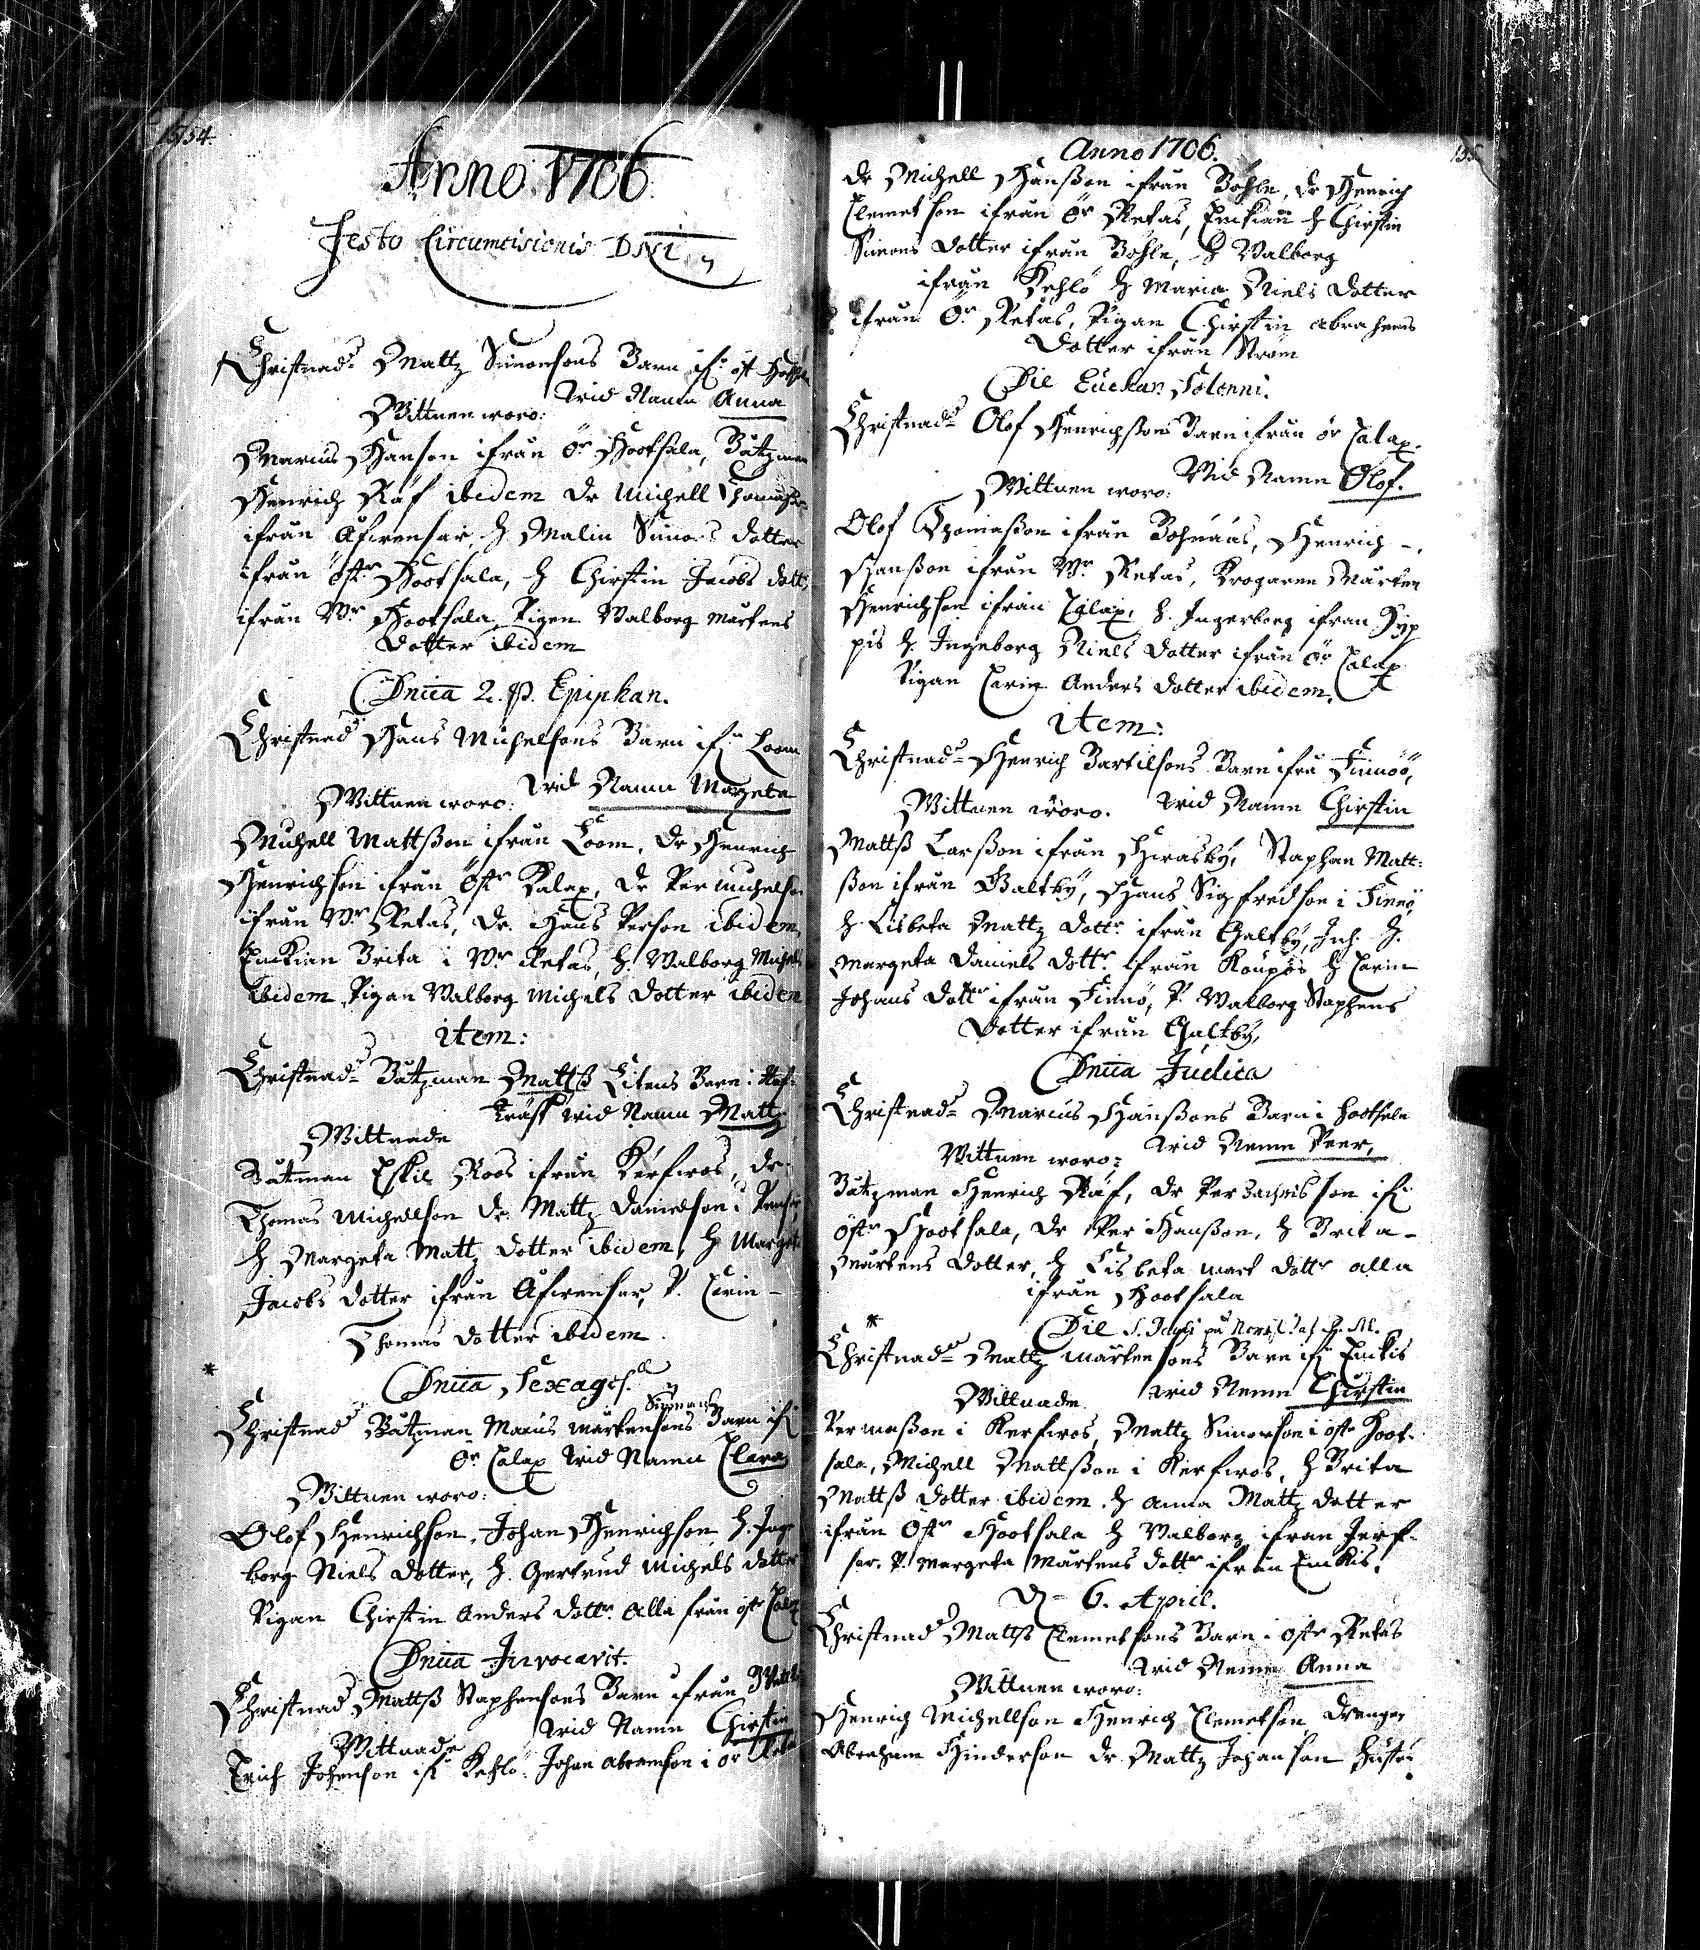 154
Anno 1706
Festo Circumcisionis Dni
Christnad: Mattz Simonsons Barn ifr öst
wid Namn Anna
Wittnen woro:
Marcus Hanson ifrån Ör Hootsala, Båtzman
Henrich Räf ibidem Dr Michell Thomasson
ifrån Åfwensar, H Malin Simons dotter
ifrån östr Hootsala, H Chirstin Jacobs dott:
ifrån Wr Hootsala, Pigen Walborg Mårtens
Dotter ibidem
Dnica 2. P. Epiphan.
Christnad Hans Michelsons Barn ifn Loom
wid Namn Margeta
Wittnen woro:
Michell Mattsson ifrån Loom, Dr Henrich
Henrichson ifrån Östr Kalax, Dr Per Michelson
ifrån Wr Retas, Dr. Hans Person ibidem
Enckian Brita i Wr Retas, H. Walborg Michels
ibidem, Pigan Walborg Michels Dotter ibidem
item:
Christnad: Båtzman Mattss Litens Barn i
träsk wid Namn Mattz
Wittnade
Båtman Eskil Roos ifrån Kerfwos, Dr.
Thomas Michellson Dr. Mattz Danielson i
H Margeta Mattz dotter ibidem, H Margeta
Jacobs dotter ifrån Åfwensar, P. Carin -
Thomas dotter ibidem.
* Dnica Sexages.
Simons
Christnad Båtzman Marcus Mårtensons Barn if:
Ör Calax wid Namn Clara
Wittnen woro:
Olof Henrichson, Johan Henrichson H. Inge
borg Niels dotter, H. Gertrud Michels dotter
Pigan Chirstin Anders dottr. Alla från östr Calax
Dnica Invocavit.
Christnad Mattss Staphensons Barn ifrån
wid Namn Chirstin
Wittnade
Erich Johanson ifr Kehlö Johan Abramson i ör Retas
155
Anno 1706.
Dr Michell Hansson ifrån Böhle, Dr Henrich
Clemetson ifrån Ör Retas, Enckian H Chirstin
Simons dotter ifrån Böhle, H Walborg
ifrån Kehlö H Maria Niels dotter
ifrån Ör Retas, Pigan Chirstin Abrahams
Dotter ifrån Ström
Die Euchar. Solenni.
Christnad: Olof Henrichssons Barn ifrån ör Calax.
Wid Namn Olof.
Wittnen woro:
Olof Thomasson ifrån Bohnääs, Henrich -
Hansson ifrån Wr. Retas, Krogaren Mårten
Henrichson ifrån Calax, H. Ingerborg ifrån Hyp
pis H. Ingeborg Niels dotter ifrån ör Calax
Pigan Carin Anders dotter ibidem.
item:
Christnad: Henrich Bartilsons Barn ifrå Finnöö,
Wittnen woro. wid Namn Chirstin
Mattss Larsson ifrån Hwasby, Staphan Matt:
sson ifrån Galtby, Hans Sigfredson i Finnö,
H Lisbeta Mattz dottr ifrån Galtby, Inh. H.
Margeta Daniels dottr. ifrån Roupös H Carin
Johans dottr ifrån Finnö, P. Walborg Staphens
Dotter ifrån Galtby,
Dnica Judica
Christnad: Marcus Hanssons Barn i Hootsala
wid Namn Peer,
Wittnen woro:
Båtzman Henrich Räf, Dr Per Zachris son if:
östr Hootsala, Dr Per Hansson, H Brita -
Mårtens dotter, H Lisbeta Mart dottr alla
ifrån Hootsala
*
Die
Christnad: Mattz Mårtensons Barn ifr Enckis
Wittnade wid Namn Chirstin
Per Masson i Kerfwos, Mattz Simonson i östr Hoot-
sala, Michell Mattsson i Kerfwos, H Brita
Mattss dotter ibidem, H Anna Mattz dotter
ifrån Östr Hootsala H Walborg ifrån Jerf-
sor. P. Margeta Mårtens dottr ifrån Enckis.
D = 6. April.
Christnad Mattss Clemetsons Barn i östr Retas
wid Namn Anna
Wittnen woro:
Henrich Michellson Henrich Clemetson Drenger
Abraham Hinderson Dr. Mattz Johanson Hustr: